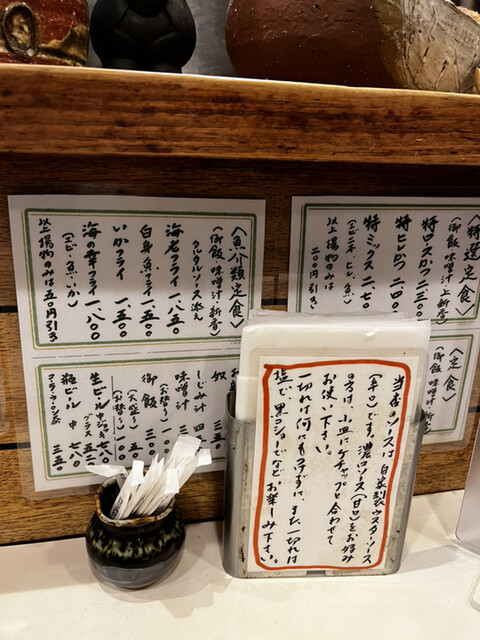 〈特選定食〉
(御飯 味噌汁 新香)
特ロースかつ 二三〇
特ヒレかつ 二四〇
特ミックス 二七〇
(エビ、ヒレ、魚)
以上揚物のみは
二〇〇円引き
〈定食〉
(御飯 味噌汁 新香)
〈魚介類定食〉
(御飯 味噌汁 新香)
タルタルソース添え
海老フライ 一、八五〇
白身魚フライ 一、五五〇
いかフライ 一、五〇〇
海の幸フライ 一、八〇〇
(エビ・魚・いか)
以上揚物のみは五〇円引き
奴
しじみ汁
味噌汁
御飯
(お替り)
(大盛り)
(お替り)
生ビール 中ジョッキ 七八〇
グラス 五五〇
瓶ビール 中
当店のソースは、自家製ウスターソース
(辛口)です。濃口ソース(甘口)をお好み
の方は、小皿にケチャップと合わせて
お使い下さい。
一切れは何にも付けずに、また一切れは
塩で、黒コショーでなどお楽しみ下さい。